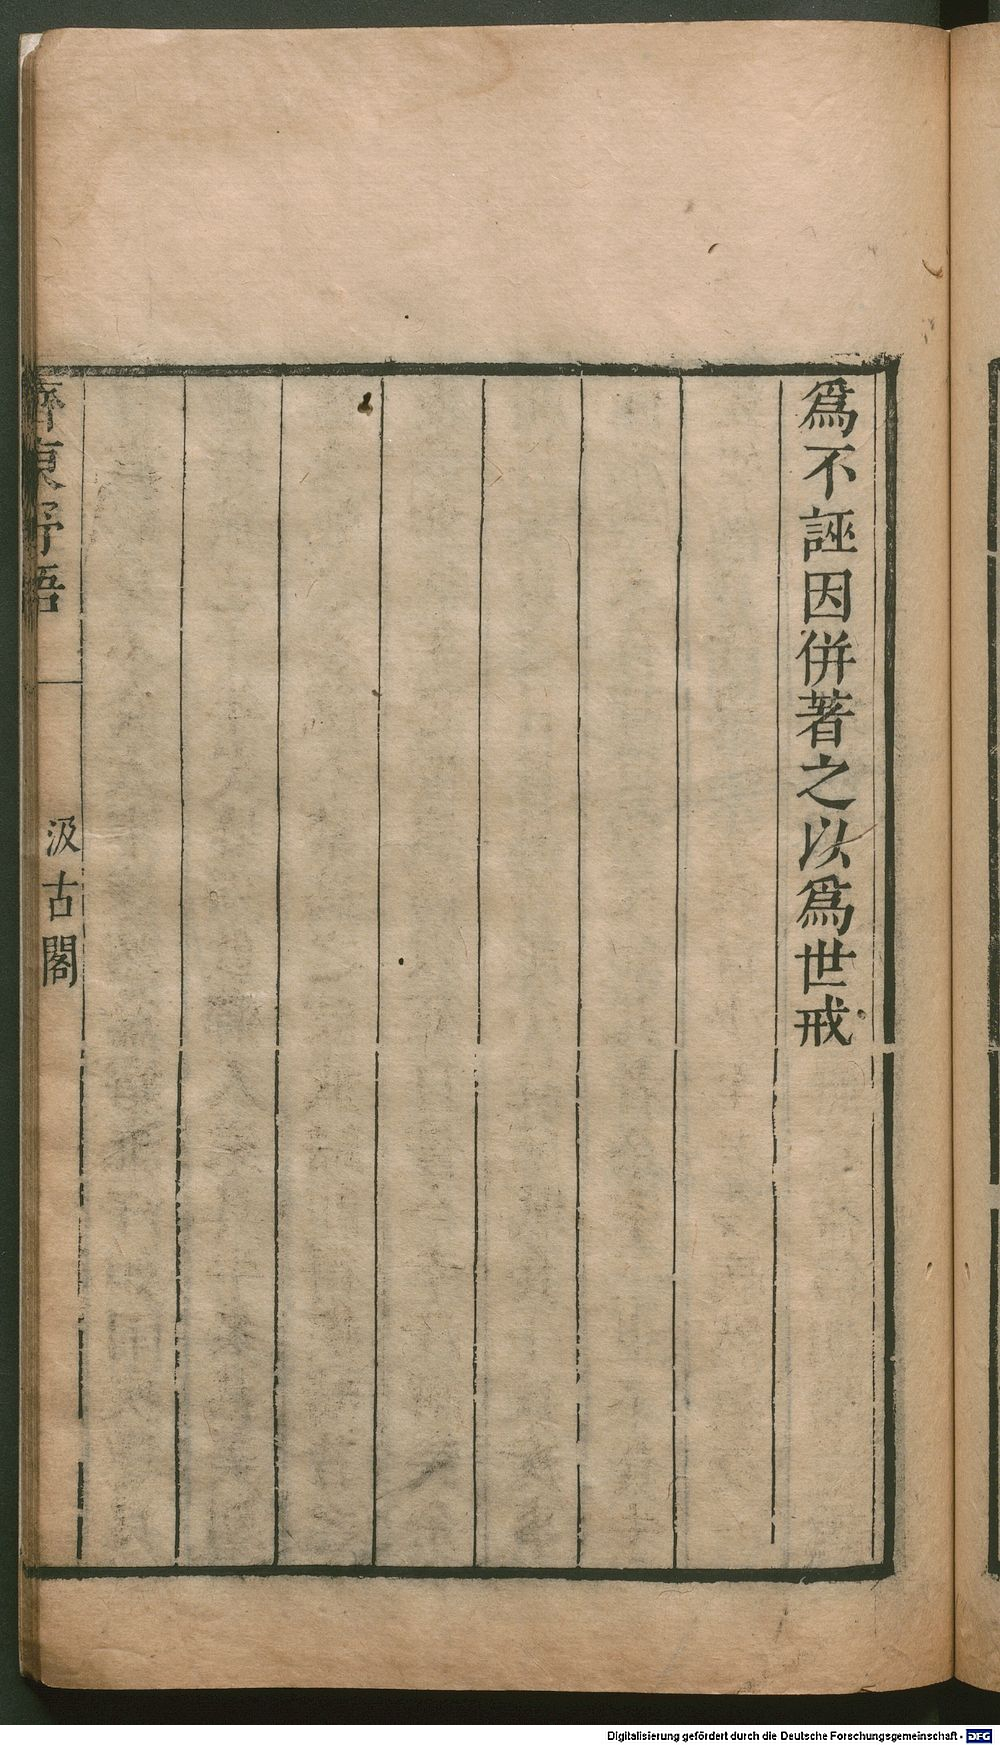 爲不誣因併著之以爲世戒
齊東野語
汲古閣
Digitalisierung gefördert durch die Deutsche Forschungsgemeinschaft - DFG